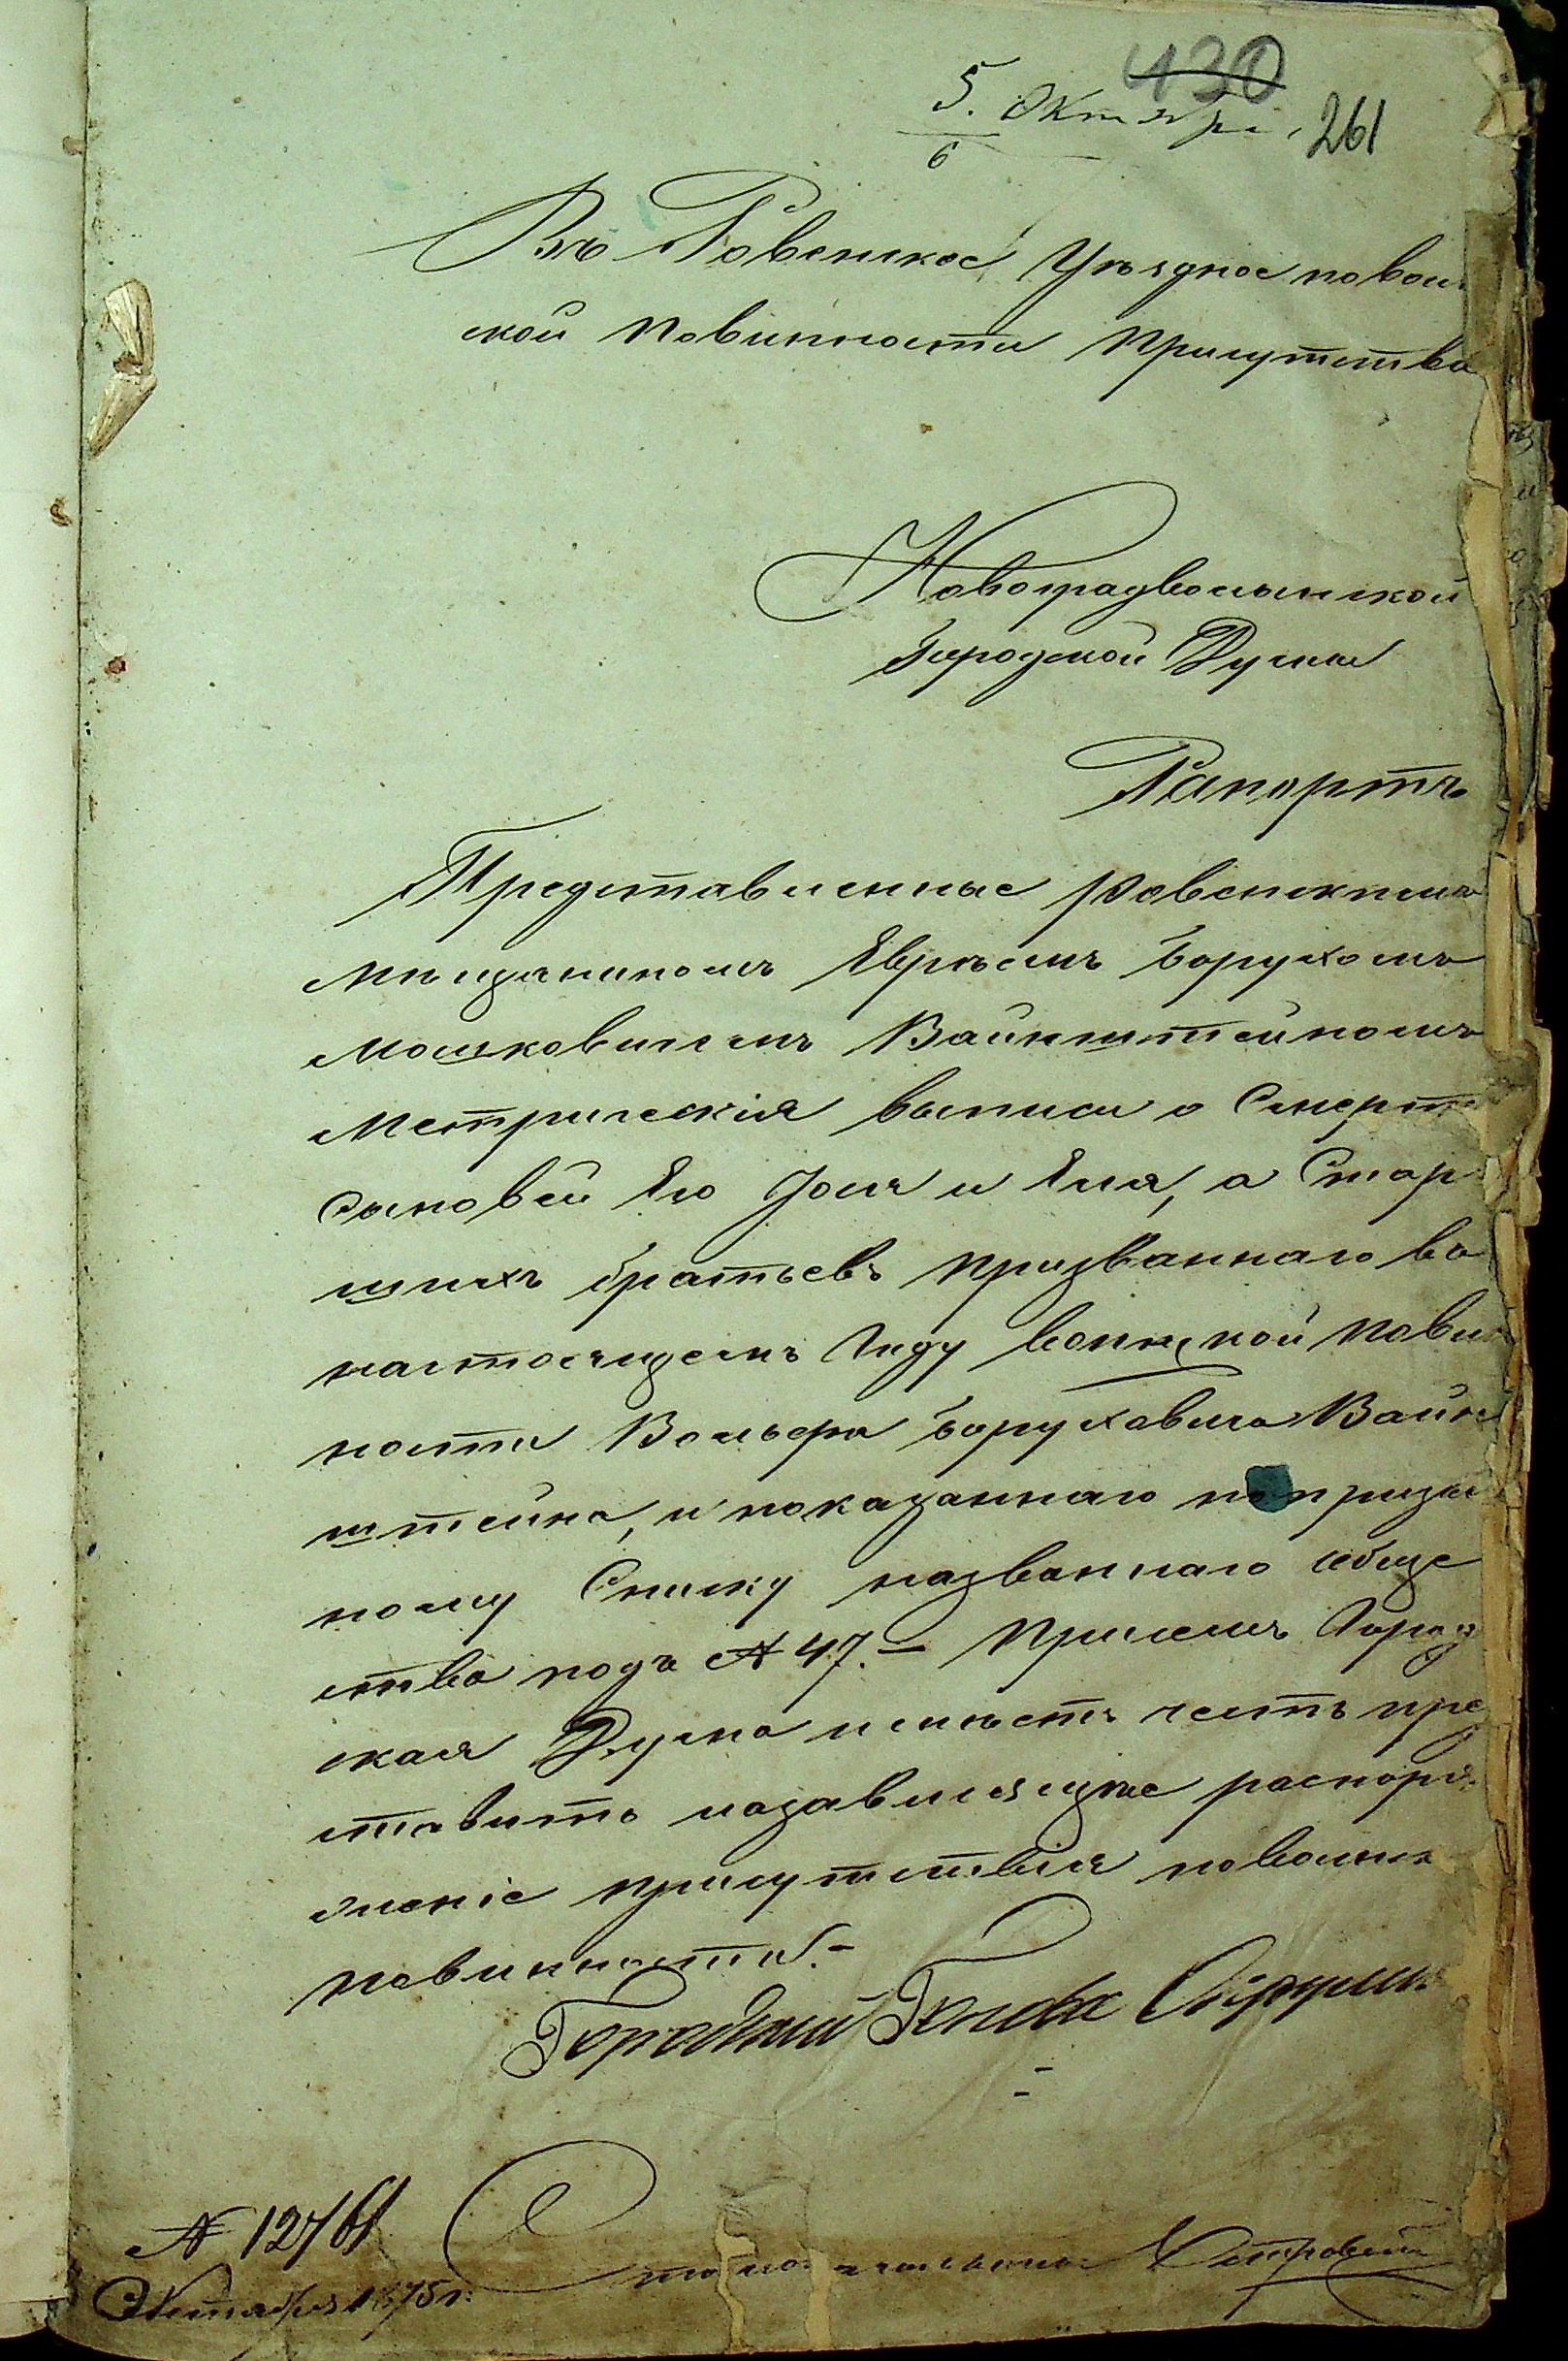 430
5. Октября 261
6
Въ Ровенское Уѣздное по воин
ской повинности присутствіе
Новоградволынской
Городской Думы
Рапортъ
Представленные Ровенскимъ
мѣщаниномъ Евреемъ Борухомъ
Мошковичемъ Вайнштейномъ
Метрическія выписи о Смерти
Сыновей Его Іося и Еля, а Стар
шихъ братьевъ призваннаго въ
настоящемъ Году воинской повин
ности Вольфа Боруховича Вайн
штейна, и показаннаго по призыв
ному Списку названнаго обще
ства подъ № 47. – При семъ Город
ская Дума имѣетъ честь пред
ставить на зависящее распоря
женіе присутствія по воинск
повинности. –
Городской Голова
№ 12761
Октября 1875 г.